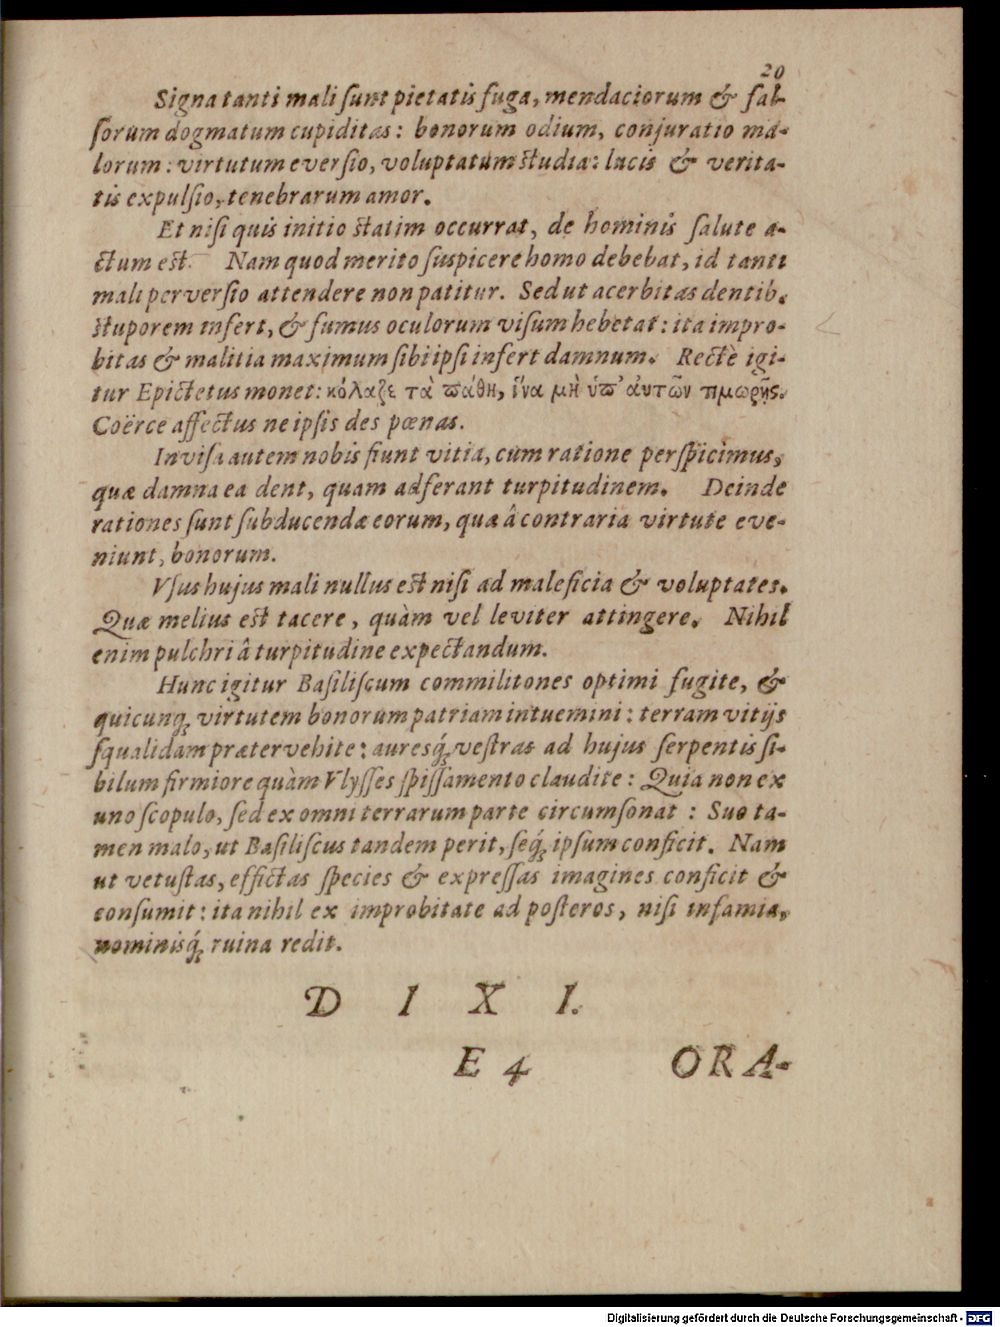 20
Signa tanti mali ſunt pietatis fuga, mendaciorum & fal-
ſorum dogmatum cupiditas: bonorum odium, conjuratio ma-
lorum: virtutum everſio, voluptatum ſtudia: lucis & verita-
tis expulſio, tenebrarum amor.
Et niſi quis initio ſtatim occurrat, de hominis ſalute a-
ctum eſt. Nam quod merito ſuſpicere homo debebat, id tanti
mali perverſio attendere non patitur. Sed ut acerbitas dentib.
ſtuporem infert, & fumus oculorum viſum hebetat: ita impro-
bitas & malitia maximum ſibi ipſi infert damnum. Rectè igi-
tur Epictetus monet: κόλαζε τὰ ϖάθη, ἵνα μὴ ὑϖ' ἀυτῶν τιμωρῇς.
Coërce affectus ne ipſis des pœnas.
Inviſa autem nobis fiunt vitia, cum ratione perſpicimus,
quæ damna ea dent, quam adferant turpitudinem. Deinde
rationes ſunt ſubducendæ eorum, quæ â contraria virtute eve-
niunt, bonorum.
Vſus hujus mali nullus eſt niſi ad maleficia & voluptates.
Quæ melius eſt tacere, quàm vel leviter attingere. Nihil
enim pulchri â turpitudine expectandum.
Hunc igitur Baſiliſcum commilitones optimi fugite, &
quicunq; virtutem bonorum patriam intuemini: terram vitijs
ſqualidam prætervehite: auresq́; veſtras ad hujus ſerpentis ſi-
bilum firmiore quàm Vlyſſes ſpiſſamento claudite: Quia non ex
uno ſcopulo, ſed ex omni terrarum parte circumſonat: Suo ta-
men malo, ut Baſiliſcus tandem perit, ſeq́; ipſum conficit. Nam
ut vetuſtas, effictas ſpecies & expreſſas imagines conficit &
conſumit: ita nihil ex improbitate ad poſteros, niſi infamia,
nominisq́; ruina redit.
D I X I.
E 4 ORA-
Digitalisierung gefördert durch die Deutsche Forschungsgemeinschaft - DFG